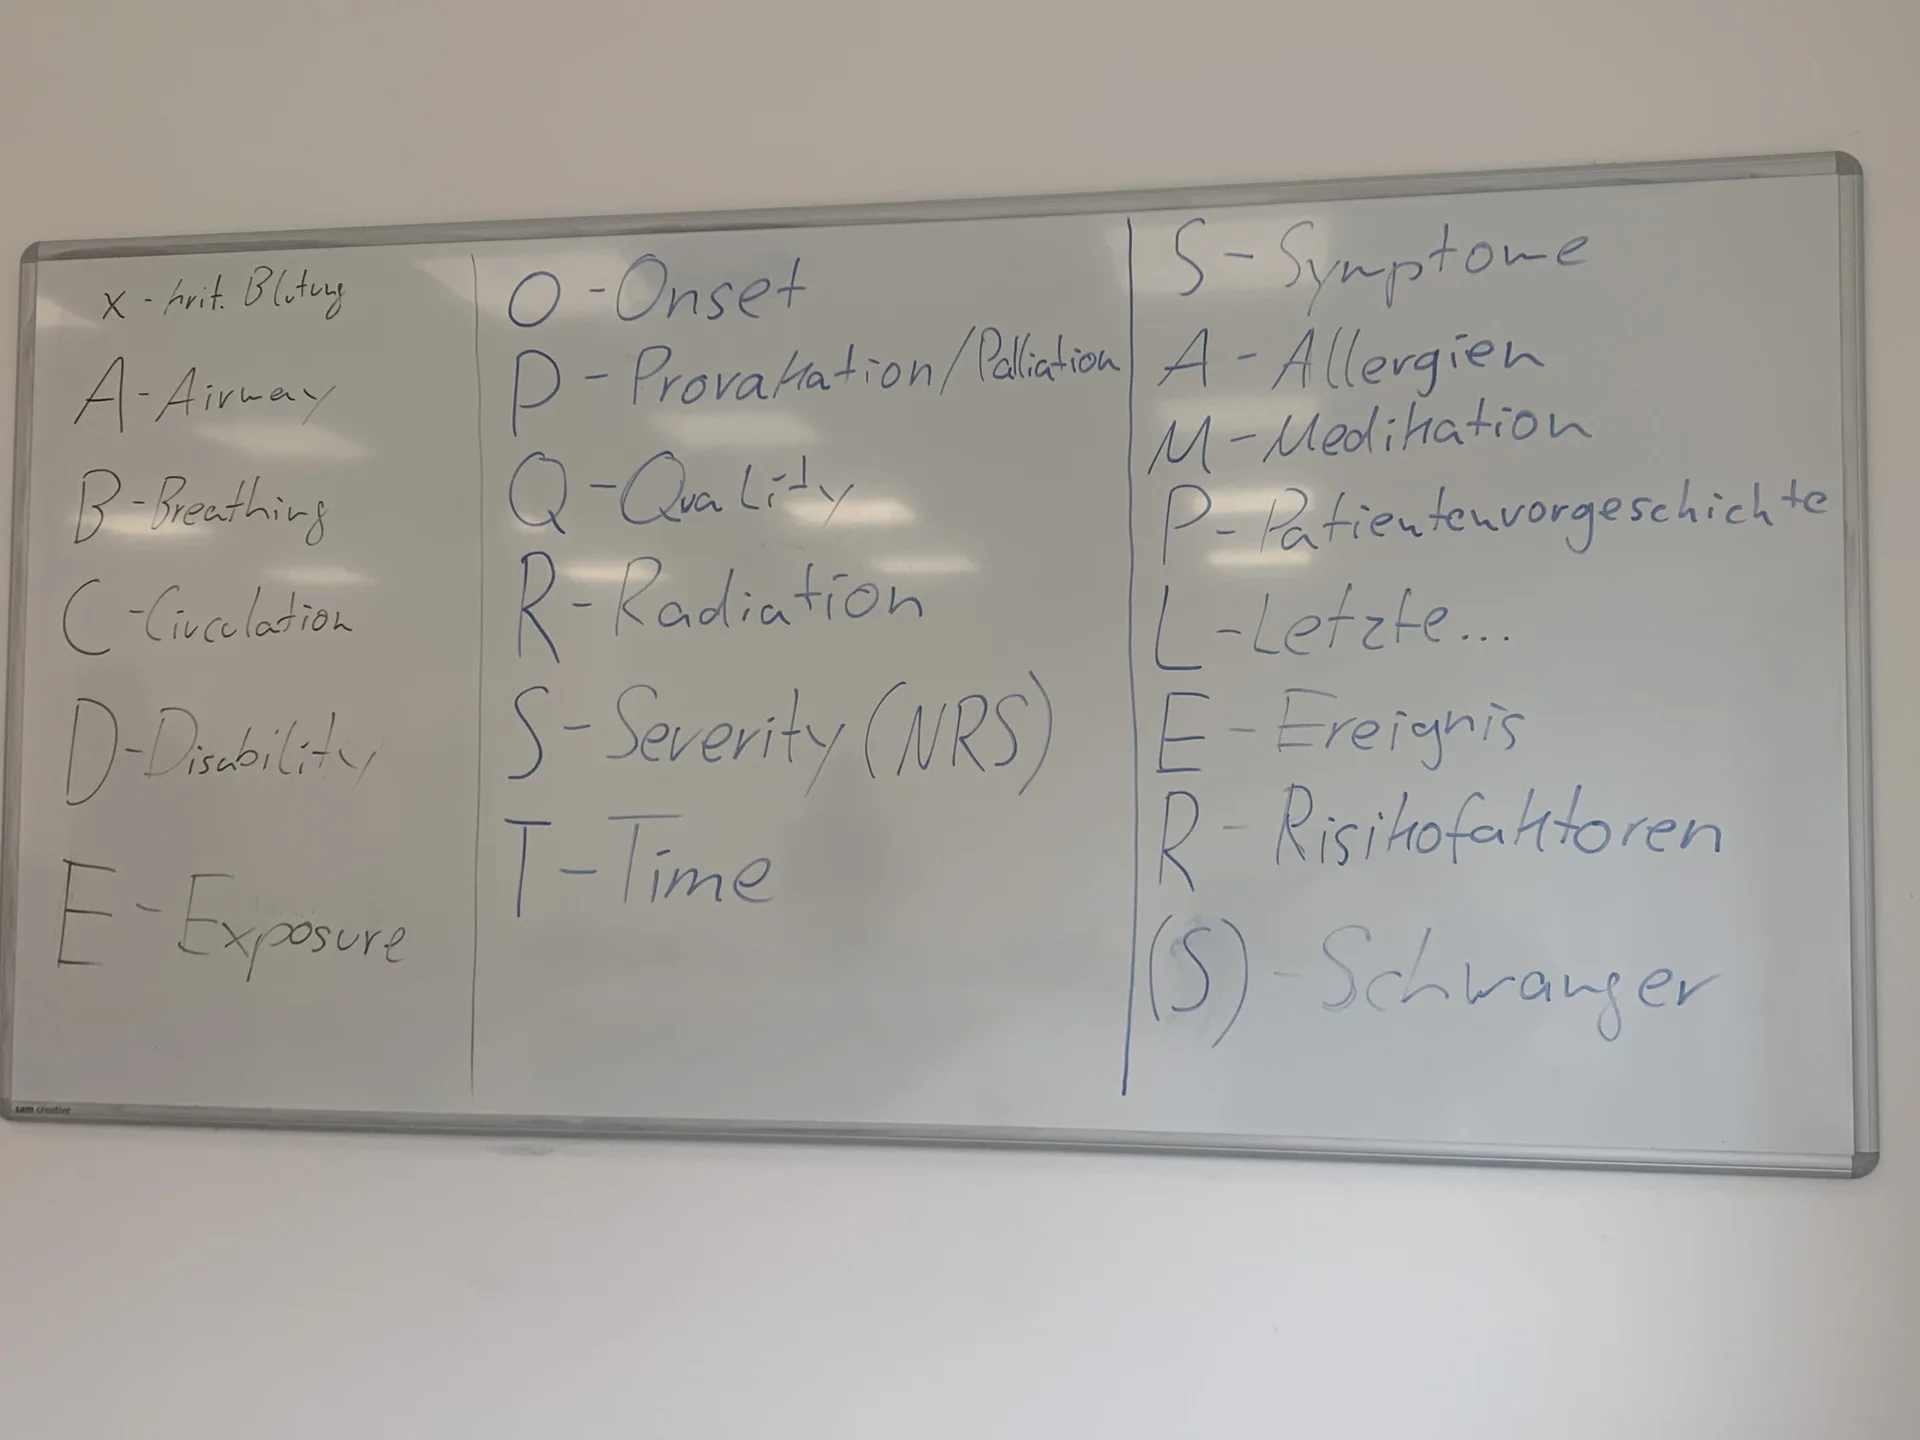 x - krit. Blutung
A - Airway
B - Breathing
C - Circulation
D - Disability
E - Exposure
O - Onset
P - Provakation / Palliation
Q - Quality
R - Radiation
S - Severity (NRS)
T - Time
S - Symptome
A - Allergien
M - Medikation
P - Patientenvorgeschichte
L - Letzte...
E - Ereignis
R - Risikofaktoren
(S) - Schwanger
sam creative